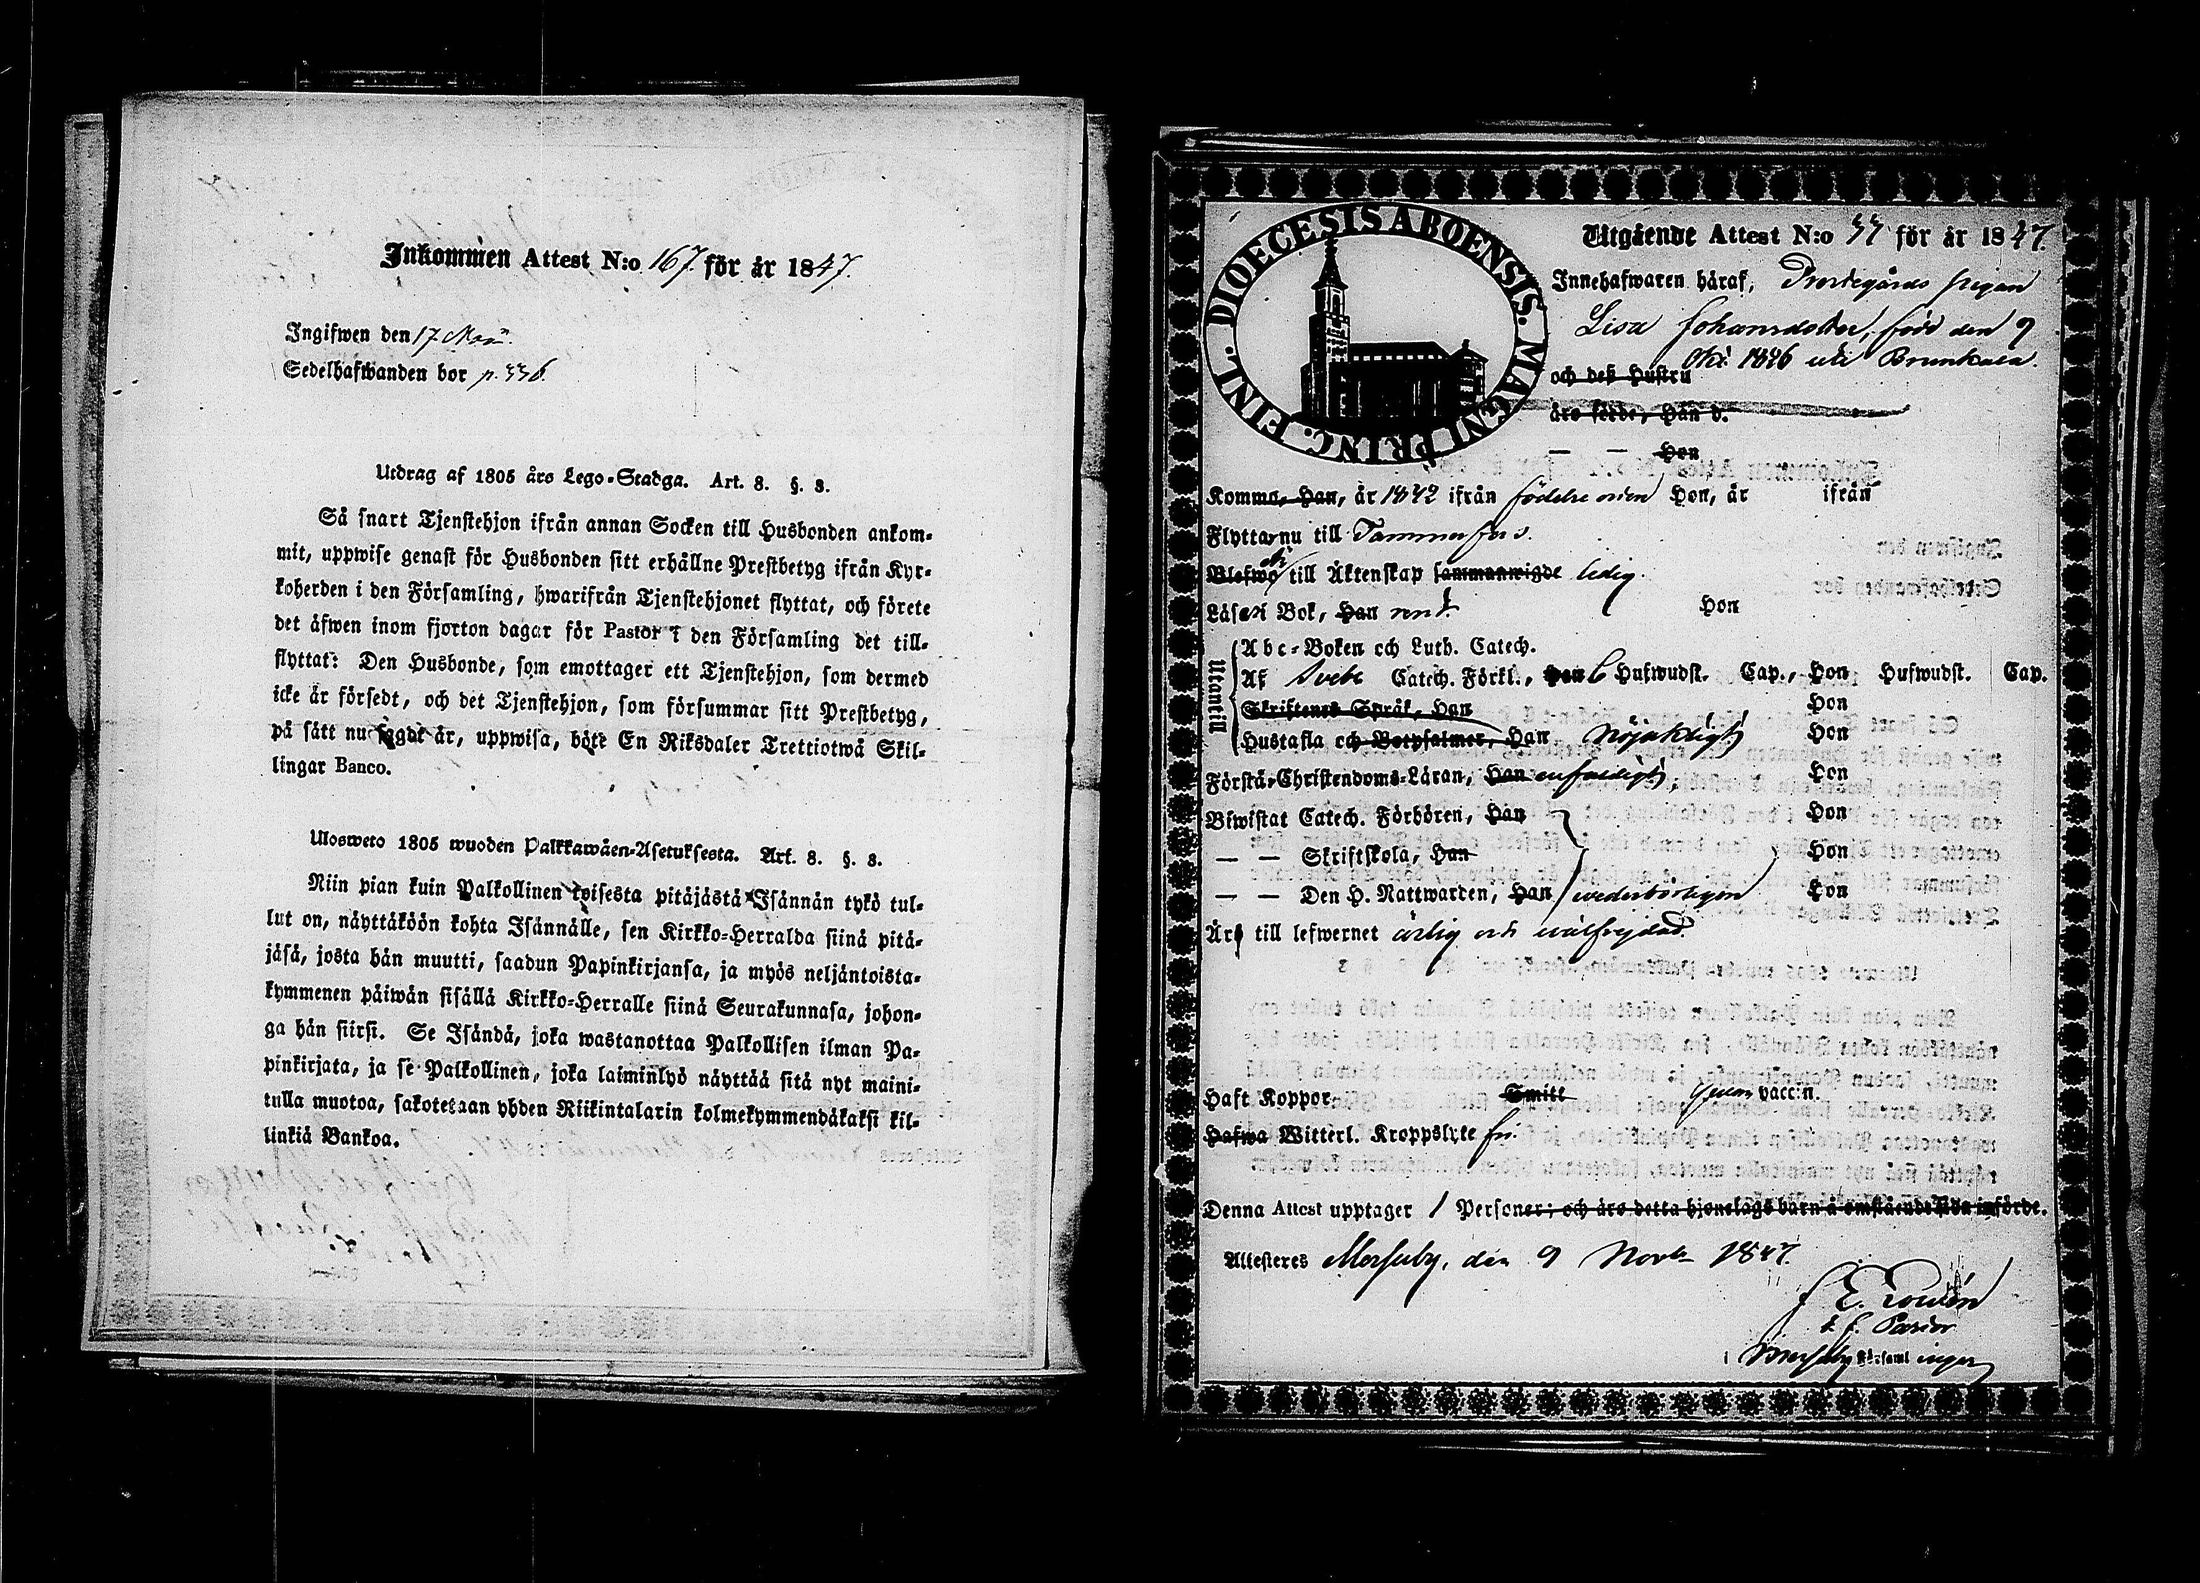 Inkommen Attest N:o 167. för år 1847.
Ingifwen den 17 Nov.
Sedelhafwanden bor p. 336.
Utdrag af 1805 års Lego-Stadga. Art. 8. §. 8.
Så snart Tjenstehjon ifrån annan Socken till Husbonden ankom-
mit, uppwise genast för Husbonden sitt erhållne Prestbetyg ifrån Kyr-
koherden i den Församling, hwarifrån Tjenstehjonet flyttat, och förete
det äfwen inom fjorton dagar för Pastor i den Församling det till-
flyttat: Den Husbonde, som emottager ett Tjenstehjon, som dermed
icke är försedt, och det Tjenstehjon, som försummar sitt Prestbetyg,
på sätt nu sagdt är, uppwisa, böte En Riksdaler Trettiotwå Skil-
lingar Banco.
Ulosweto 1805 wuoden Palkkawäen-Asetuksesta. Art. 8. §. 8.
Niin pian kuin Palkollinen toisesta pitäjästä Isännän tykö tul-
lut on, näyttäköön kohta Isännälle, sen Kirkko-Herralda siinä pitä-
jäsä, josta hän muutti, saadun Papinkirjansa, ja myös neljäntoista-
kymmenen päiwän sisällä Kirkko-Herralle siinä Seurakunnasa, johon-
ga hän siirsi. Se Isändä, joka wastanottaa Palkollisen ilman Pa-
pinkirjata, ja se Palkollinen, joka laiminlyö näyttää sitä nyt maini-
tulla muotoa, sakotetaan yhden Riikintalarin kolmekymmendäkaksi kil-
linkiä Bankoa.
DIOECESIS ABOENSIS. MAGNI PRINC. FINL.
Utgående Attest N:o 33 för år 1847.
Innehafwaren häraf, Prestegårds pigan
Lisa Johansdotter, född den 9
Okt. 1826 uti Brunkala.
och deß Hustru
äro födde, Han d.
— — Hon
Kommo, Han, år 1842 ifrån födelse orten Hon, år ifrån
Flyttar nu till Tammerfors.
Blefwo till Äktenskap sammanwigde ledig.
Läser i Bok, Han rent Hon
Utantill
Abc-Boken och Luth. Catech.
Af Svebi Catech. Förkl., Han 6 Hufwudst. Cap., Hon Hufwudst. Cap.
Skriftenes Språk, Han Hon
Hustafla och Botpsalmer, Han Nöjaktigt Hon
Förstår Christendoms-Läran, Han enfaldigt, Hon
Biwistat Catech. Förhören, Han Hon
— — Skriftskola, Han Hon
— — Den H. Nattwarden, Han wederbörligen Hon
Är till lefwernet ärlig och wälfrejdad.
Haft Koppor Smitt Genom vaccin.
Hafwa Witterl. Kroppslyte fri.
Denna Attest upptager 1 Personer; och äro detta hjonelags barn å omstående sida införde.
Attesteres Merseby, den 9 Novb 1847.
t. f. Pastor
i Församlingen